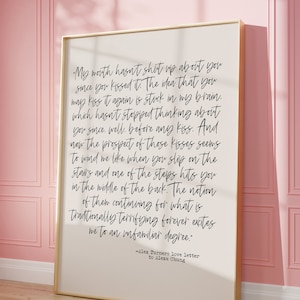 "My mouth hasn't shut up about you
since you kissed it. The idea that you
may kiss it again is stuck in my brain,
which hasn't stopped thinking about
you since, well, before any kiss. And
now the prospect of those kisses seems
to wind me like when you slip on the
stairs and one of the steps hits you
in the middle of the back. The notion
of them continuing for what is
traditionally terrifying forever excites
me to an unfamiliar degree."
-Alex Turners Love Letter
to Alexa Chung